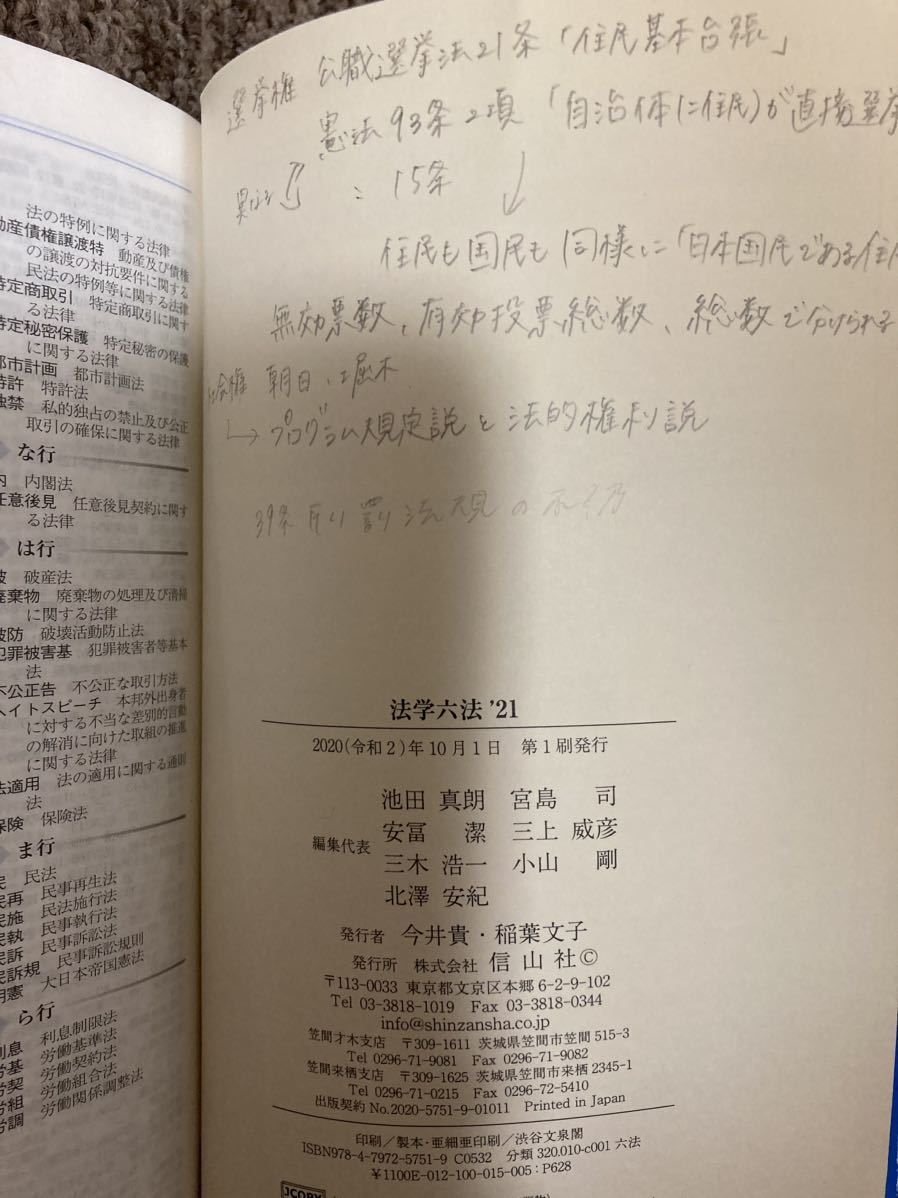 法の特例に関する法律
動産債権譲渡特 動産及び債権
の譲渡の対抗要件に関する
民法の特例等に関する法律
特定商取引 特定商取引に関す
る法律
特定秘密保護 特定秘密の保護
に関する法律
都市計画 都市計画法
特許 特許法
独禁 私的独占の禁止及び公正
取引の確保に関する法律
な行
内 内閣法
任意後見 任意後見契約に関す
る法律
は行
破 破産法
廃棄物 廃棄物の処理及び清掃
に関する法律
破防 破壊活動防止法
犯罪被害基 犯罪被害者等基本
法
不公正告 不公正な取引方法
ヘイトスピーチ 本邦外出身者
に対する不当な差別的言動
の解消に向けた取組の推進
に関する法律
法適用 法の適用に関する通則
法
保険 保険法
ま行
民 民法
民再 民事再生法
民施 民法施行法
民執 民事執行法
民訴 民事訴訟法
民訴規 民事訴訟規則
明憲 大日本帝国憲法
ら行
利息 利息制限法
労基 労働基準法
労契 労働契約法
労組 労働組合法
労調 労働関係調整法
選挙権 公職選挙法21条「住民基本台張」
憲法93条2項 「自治体に住民)が直接選挙
15条
住民も国民も同様に「日本国民である住
無効票数、有効投票総数、総数で分けられる
朝日、堀木
プログラム規定説と法的権利説
39条 刑罰法規の不
法学六法 '21
2020(令和2)年10月1日 第1刷発行
池田 真朗 宮島 司
安冨 潔 三上 威彦
編集代表
三木 浩一 小山 剛
北澤 安紀
発行者 今井貴・稲葉文子
発行所 株式会社 信山社©
〒113-0033 東京都文京区本郷 6-2-9-102
Tel 03-3818-1019 Fax 03-3818-0344
info@shinzansha.co.jp
笠間才木支店 〒309-1611 茨城県笠間市笠間 515-3
Tel 0296-71-9081 Fax 0296-71-9082
笠間来栖支店 〒309-1625 茨城県笠間市来栖 2345-1
Tel 0296-71-0215 Fax 0296-72-5410
出版契約 No.2020-5751-9-01011 Printed in Japan
印刷/製本・亜細亜印刷/渋谷文泉閣
ISBN978-4-7972-5751-9 C0532 分類 320.010-c001 六法
¥1100E-012-100-015-005:P628
JCOPY